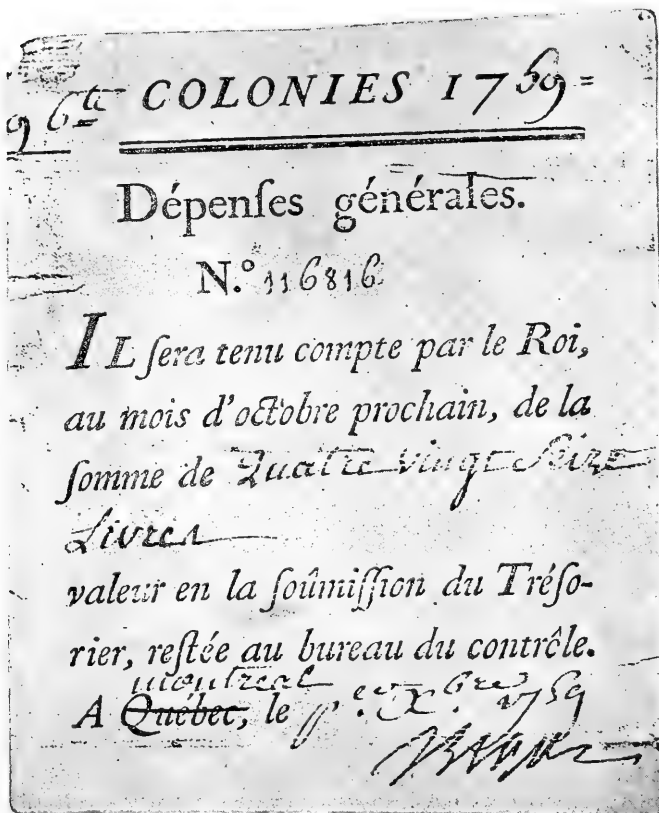 96 tt COLONIES 1759=
Dépenſes générales.
N.° 116816
IL ſera tenu compte par le Roi,
au mois d'octobre prochain, de la
ſomme de Quatre vingt Seize
Livres
valeur en la ſoûmiſſion du Tréſo-
rier, reſtée au bureau du contrôle.
montreal
A Québec, le Xbre 1759